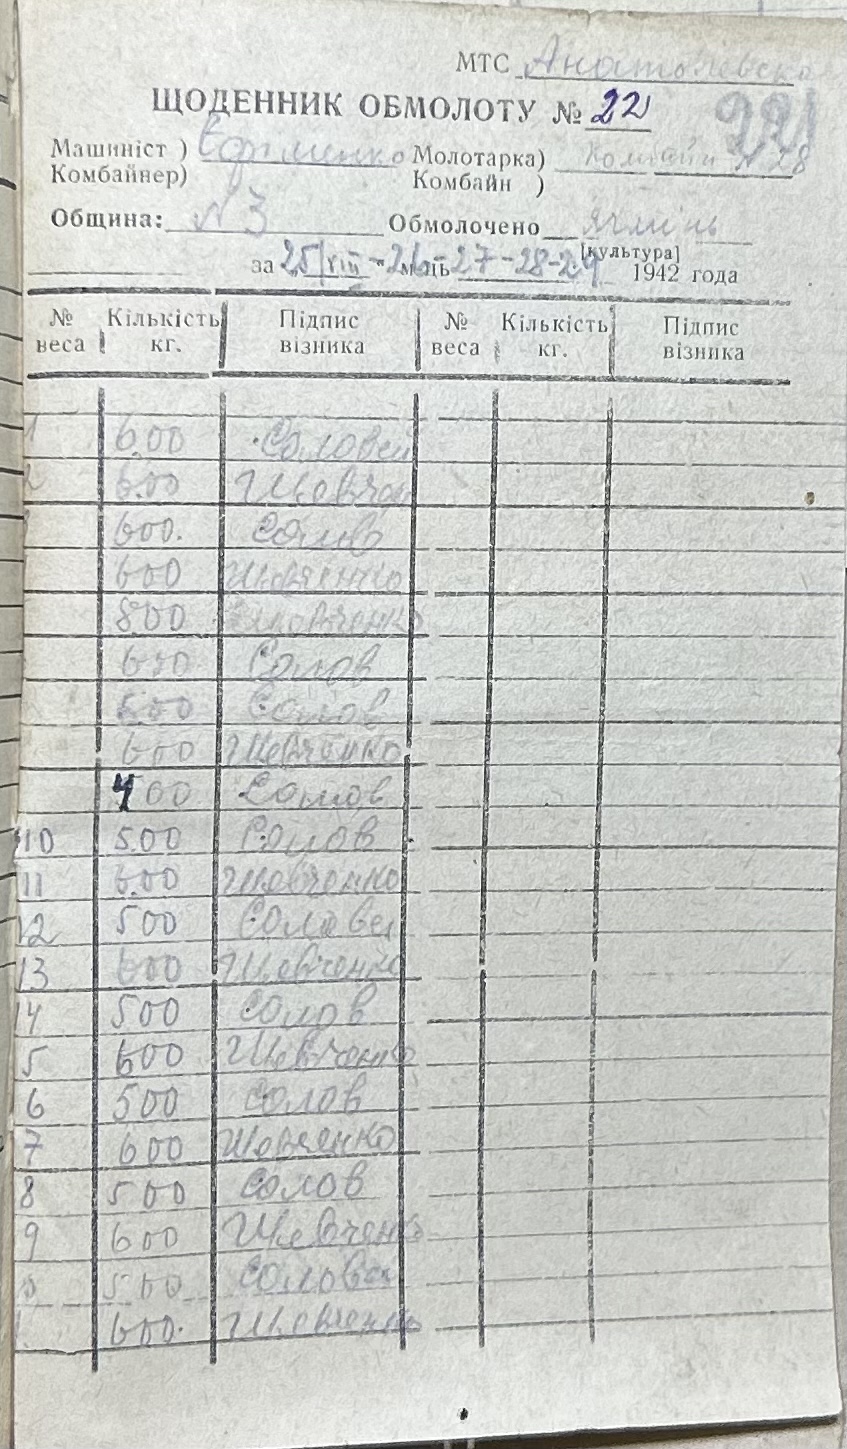 МТС Анатолевска
ЩОДЕННИК ОБМОЛОТУ № 22
221
Машиніст ) Єфименко Молотарка) Комбайн № 28
Комбайнер) Комбайн )
Община: №3 Обмолочено ячмінь
[культура]
за 25/VIII-26-27-28-29 1942 года
№ веса Кількість кг. Підпис візника № веса Кількість кг. Підпис візника
1 600 Соловей
2 600
600. Солов
600 Шевченко
800 Шевченко
600 Солов
500 Солов
600 Шевченко
400 Солов
10 500 Солов
11 600 Шевченко
12 500 Соловей
13 600 Шевченко
14 500 Солов
5 600 Шевченко
6 500 Солов
7 600 Шевченко
8 500 Солов
9 600 Шевченко
500 Соловей
600. Шевченко